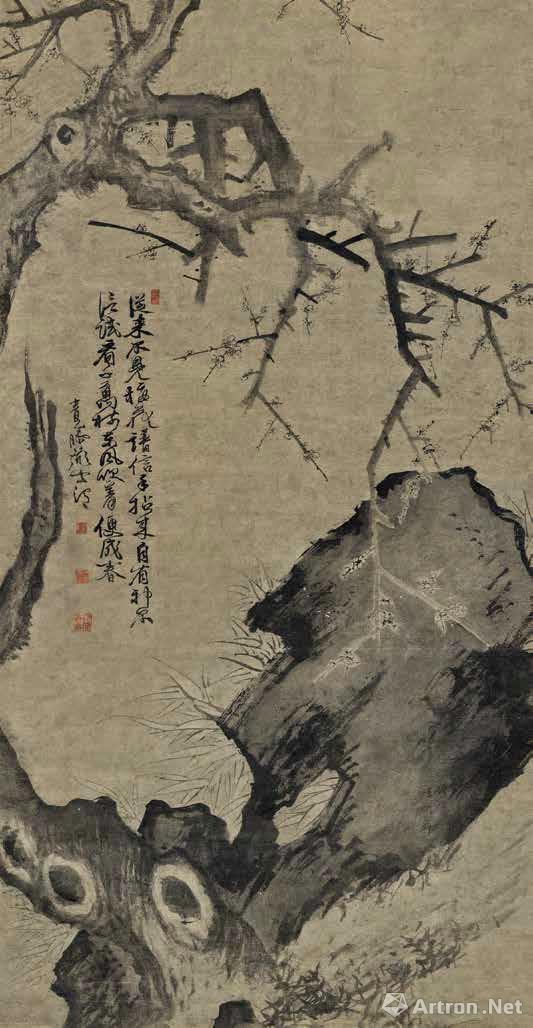 從来不見梅花譜信手拈来自有神不
信試看千萬樹東風吹着便成春
青藤道士渭
Artron.Net